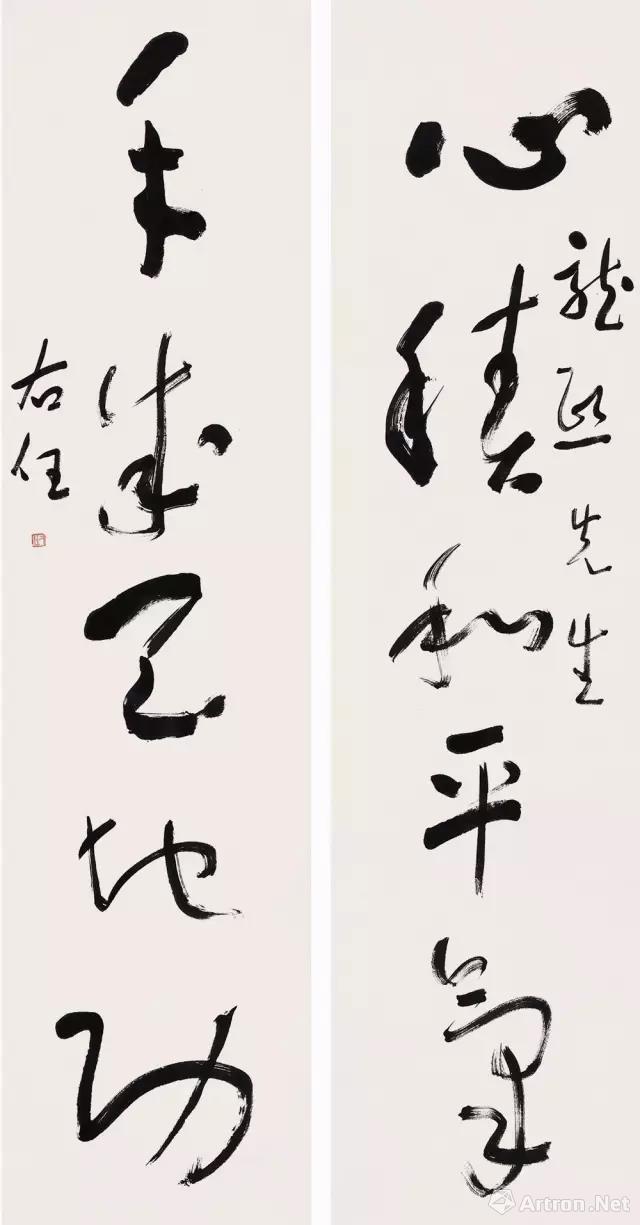 心積和平氣
龍熙先生
手成天地功
右任
Artron.Net